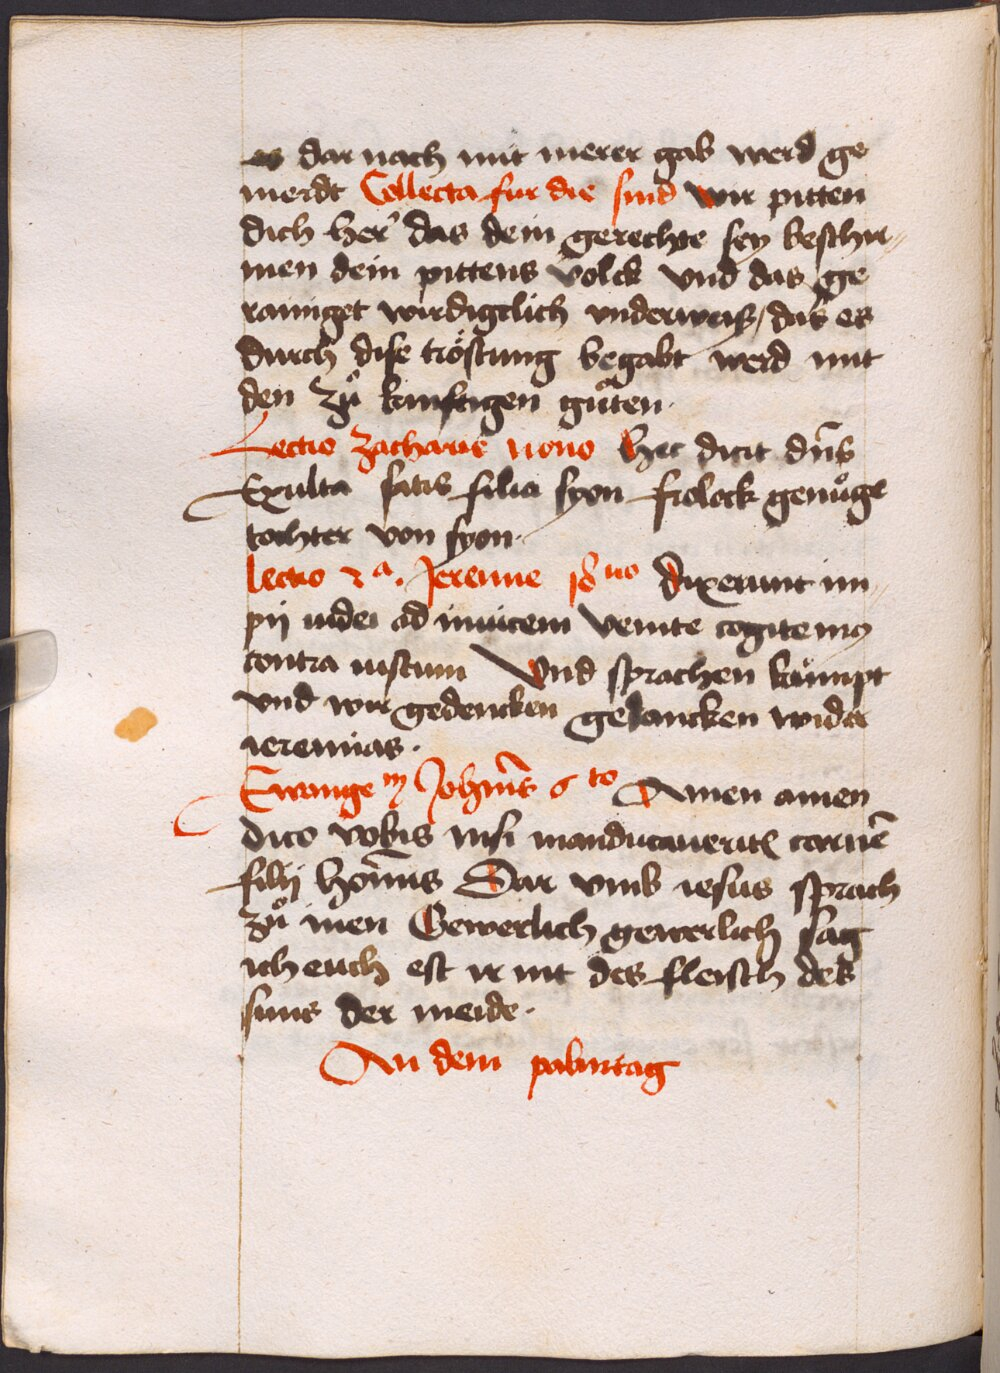 es dar nach mit merer gab werd ge
merdt Collecta fur die sind Wir pitten
dich her das dein gerechte sey beschir¬
men dein pittens volck vnd das ge
rainiget wirdigclich vnderweiß / das es
durch dise tröstung begabt werd mit
den zů kunftigen gůten.
Lectio Zacharie nono Hec dicit dn̄s
Exulta satis filia syon frolock genůge
tochter von syon.
lectio 2ª. Jeremie 18uo Dixerunt im¬
pij iudei ad inuicem venite cogitemꝰ
contra iustum Vnd sprachen kumpt
vnd wir gedencken gedancken wider
ieremias.
Ewangeᵐ Johān̄s 6to Amen amen
dico vobis nisi manducaueritꝭ carnē
filij homīnis Dar vmb iesus sprach
zů inen Gewerlich gewerlich sag
ich euch est ir nit des fleisch des
suns der meide.
An dem palmtag